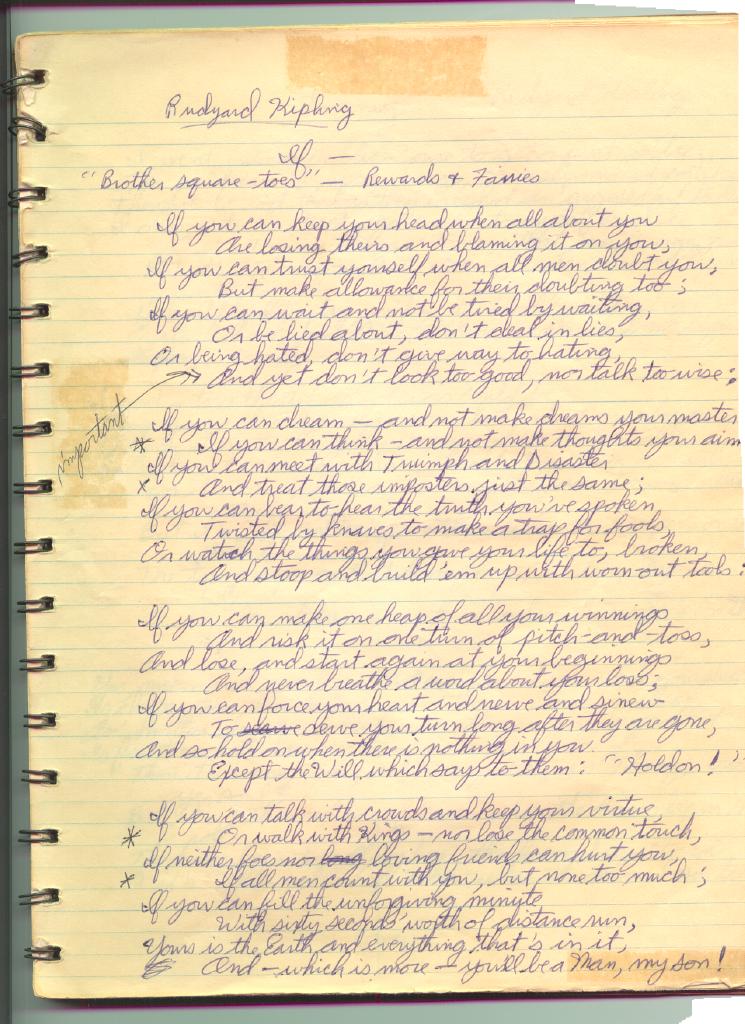 Rudyard Kipling
If —
"Brother square-toes" — Rewards & Fairies
If you can keep your head when all about you
Are losing theirs and blaming it on you,
If you can trust yourself when all men doubt you,
But make allowance for their doubting too;
If you can wait and not be tired by waiting,
Or be lied about, don't deal in lies,
Or being hated, don't give way to hating,
And yet don't look too good, nor talk too wise:
important
If you can dream — and not make dreams your master
* If you can think — and not make thoughts your aim
If you can meet with Triumph and Disaster
x And treat those imposters just the same;
If you can bear to hear the truth you've spoken
Twisted by knaves to make a trap for fools,
Or watch the things you gave your life to, broken,
And stoop and build 'em up with worn-out tools:
If you can make one heap of all your winnings
And risk it on one turn of pitch-and-toss,
And lose, and start again at your beginnings
And never breathe a word about your loss;
If you can force your heart and nerve and sinew
To serve your turn long after they are gone,
And so hold on when there is nothing in you
Except the Will which says to them: "Hold on!"
If you can talk with crowds and keep your virtue,
* Or walk with Kings — nor lose the common touch,
If neither foes nor long loving friends can hurt you,
* If all men count with you, but none too much;
If you can fill the unforgiving minute
With sixty seconds' worth of distance run,
Yours is the Earth and everything that's in it,
And — which is more — you'll be a Man, my son!